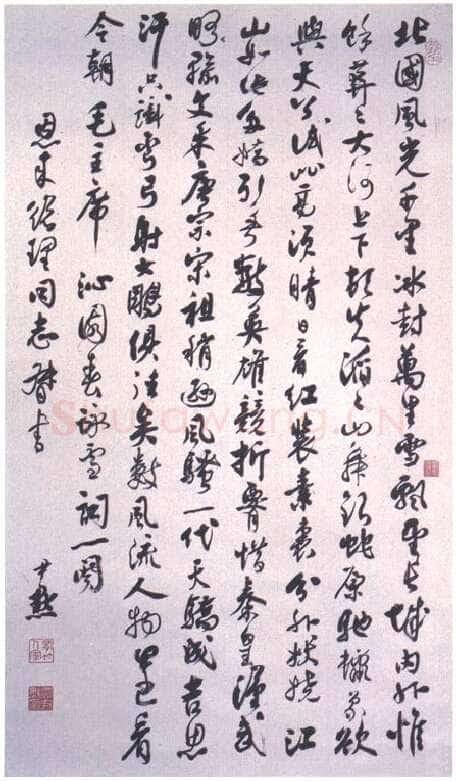 北國風光千里冰封萬里雪飄望長城內外惟
餘莽〻大河上下頓失滔〻山舞銀蛇原馳蠟象欲
與天公試比高須晴日看紅裝素裹分外妖嬈江
山如此多嬌引無數英雄競折腰惜秦皇漢武
略輸文采唐宗宋祖稍遜風騷一代天驕成吉思
汗只識彎弓射大鵰俱往矣數風流人物還看
今朝 毛主席 沁園春詠雪詞一闋
恩來總理同志督書
尹默
Shufawang.CN